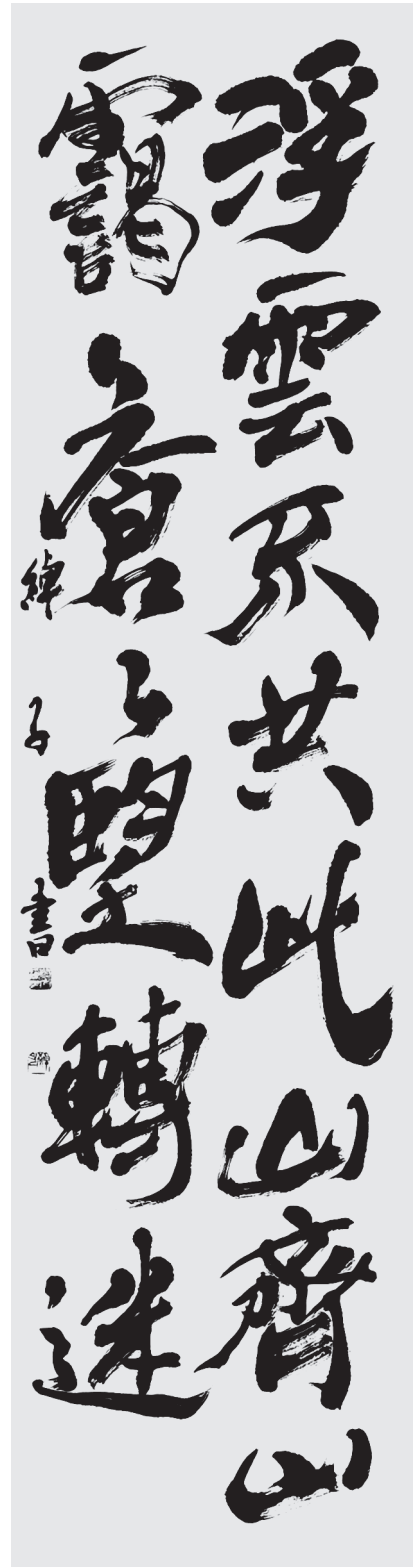 浮雲不共此山齊山
靄蒼々朢轉迷
綽子書